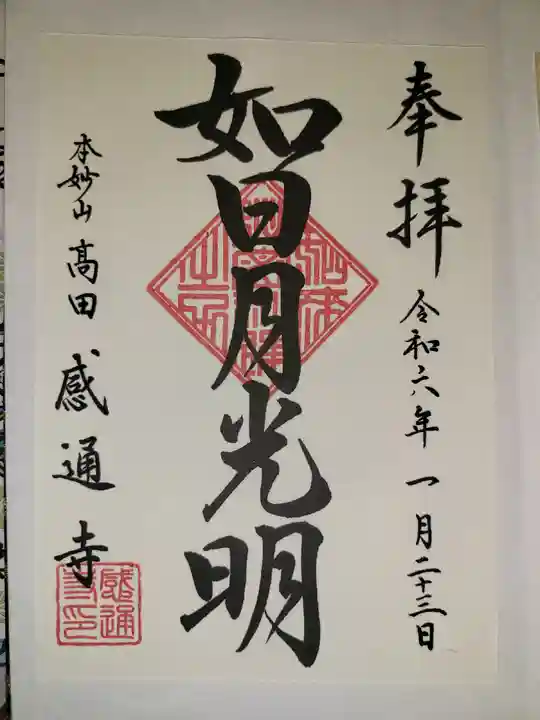 奉拝 令和六年一月二十三日
如日月光明
本妙山 高田 感通寺
感通寺印